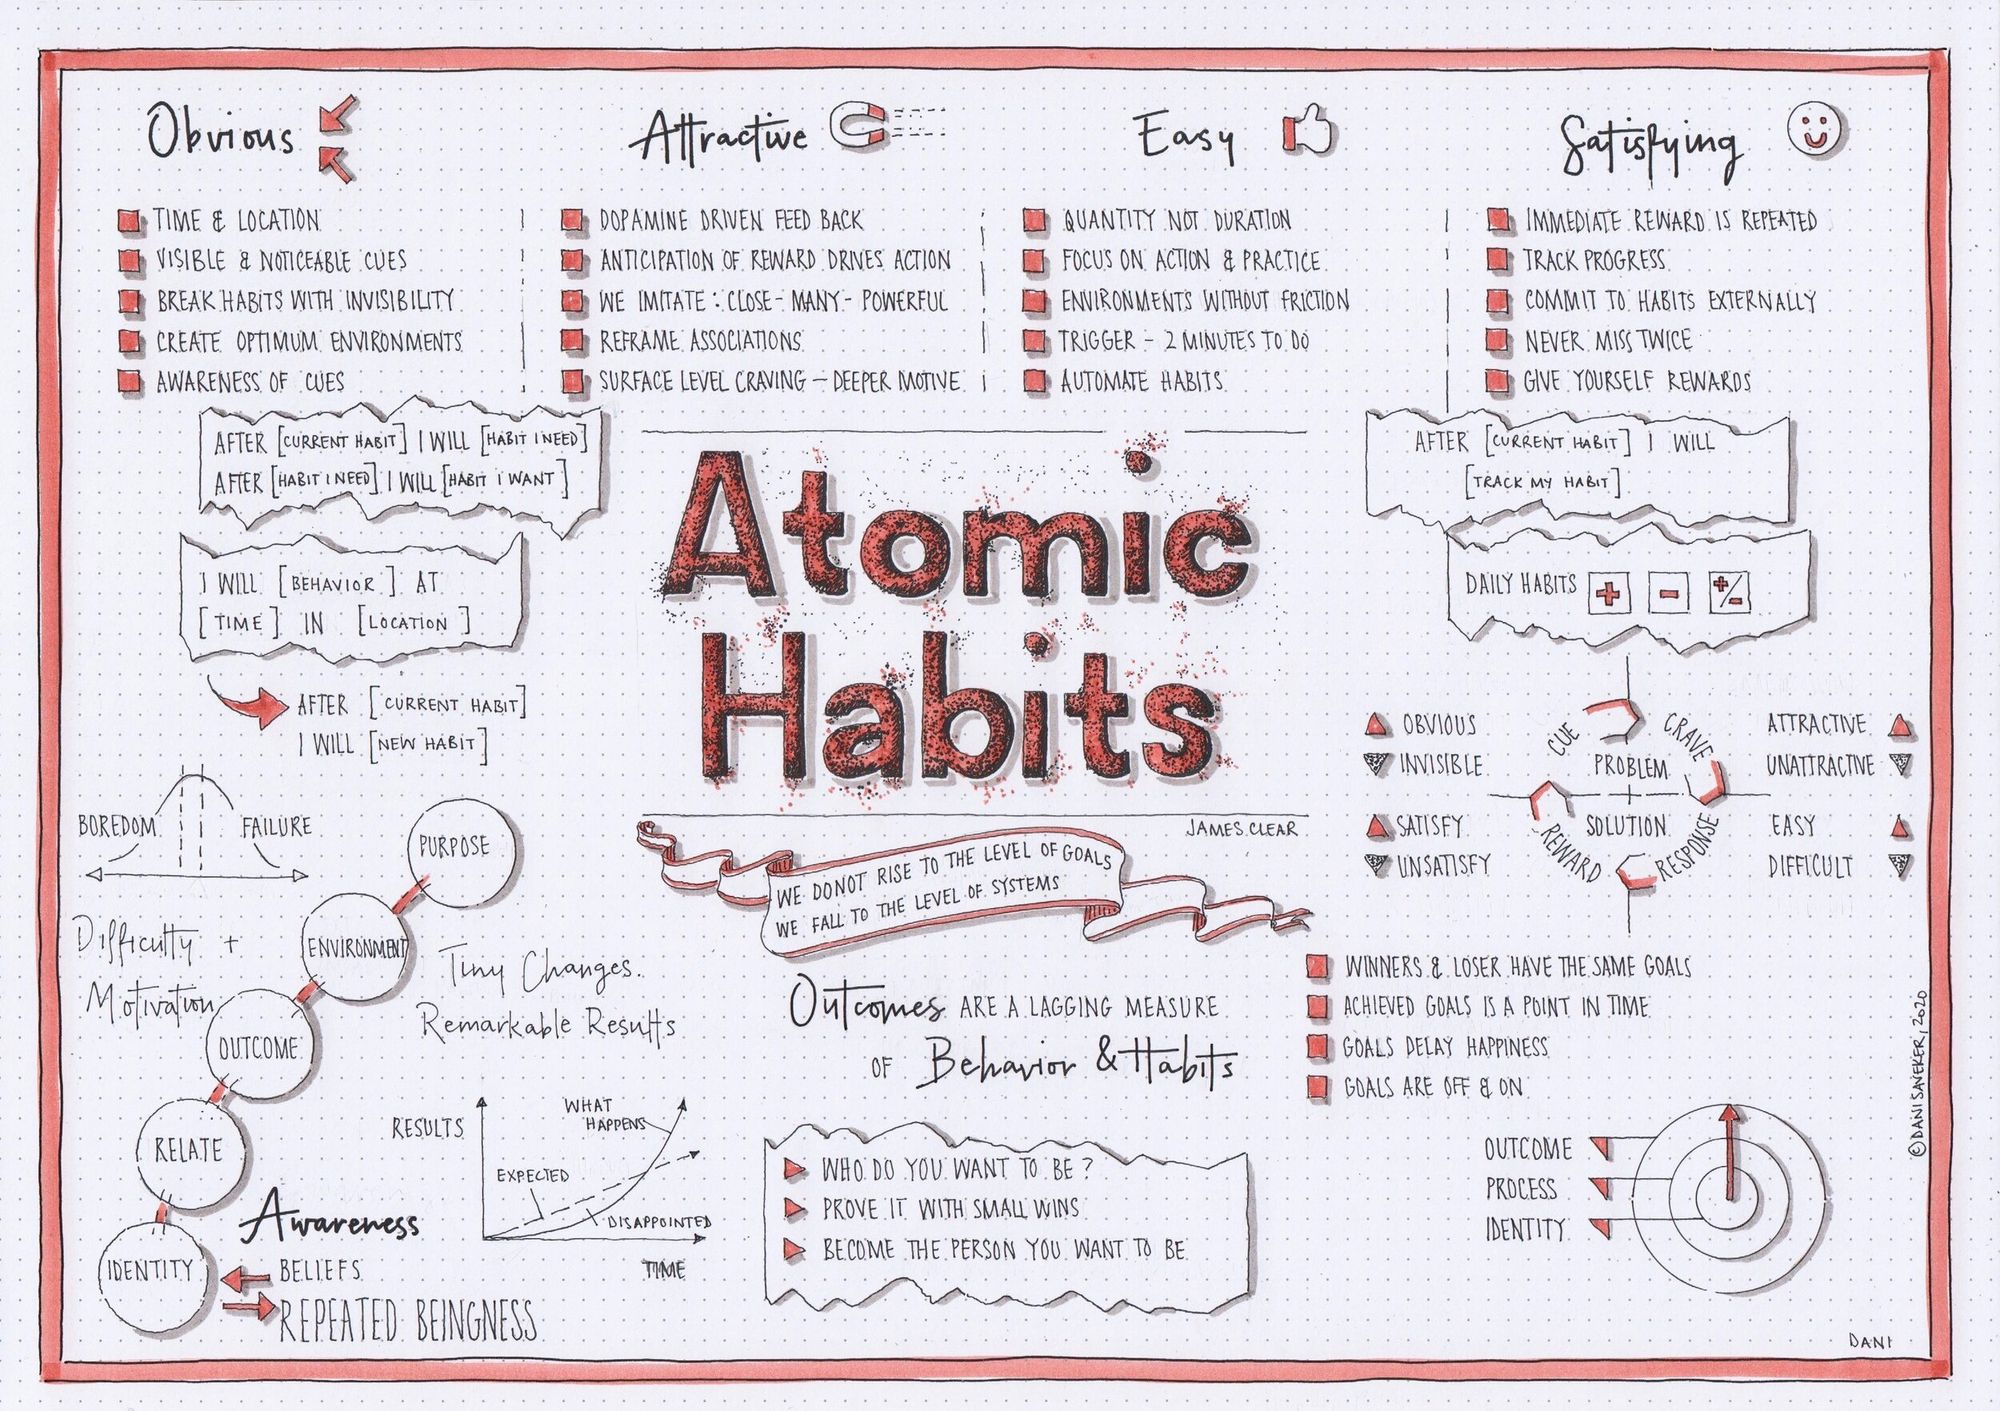 Obvious
TIME & LOCATION
VISIBLE & NOTICEABLE CUES
BREAK HABITS WITH INVISIBILITY
CREATE OPTIMUM ENVIRONMENTS
AWARENESS OF CUES
Attractive
DOPAMINE DRIVEN FEED BACK
ANTICIPATION OF REWARD DRIVES ACTION
WE IMITATE : CLOSE - MANY - POWERFUL
REFRAME ASSOCIATIONS
SURFACE LEVEL CRAVING — DEEPER MOTIVE
Easy
QUANTITY NOT DURATION
FOCUS ON ACTION & PRACTICE
ENVIRONMENTS WITHOUT FRICTION
TRIGGER - 2 MINUTES TO DO
AUTOMATE HABITS
Satisfying
IMMEDIATE REWARD IS REPEATED
TRACK PROGRESS
COMMIT TO HABITS EXTERNALLY
NEVER MISS TWICE
GIVE YOURSELF REWARDS
AFTER [CURRENT HABIT] I WILL [HABIT I NEED]
AFTER [HABIT I NEED] I WILL [HABIT I WANT]
I WILL [BEHAVIOR] AT
[TIME] IN [LOCATION]
AFTER [CURRENT HABIT]
I WILL [NEW HABIT]
Atomic
Habits
JAMES CLEAR
WE DO NOT RISE TO THE LEVEL OF GOALS
WE FALL TO THE LEVEL OF SYSTEMS
AFTER [CURRENT HABIT] I WILL
[TRACK MY HABIT]
DAILY HABITS + - +/-
OBVIOUS
INVISIBLE
SATISFY
UNSATISFY
CUE
CRAVE
PROBLEM
SOLUTION
REWARD
RESPONSE
ATTRACTIVE
UNATTRACTIVE
EASY
DIFFICULT
BOREDOM
FAILURE
Difficulty +
Motivation
PURPOSE
ENVIRONMENT
OUTCOME
RELATE
IDENTITY
Tiny Changes.
Remarkable Results
Awareness
BELIEFS
REPEATED BEINGNESS
RESULTS
WHAT
HAPPENS
EXPECTED
DISAPPOINTED
TIME
Outcomes ARE A LAGGING MEASURE
OF Behavior & Habits
WHO DO YOU WANT TO BE?
PROVE IT WITH SMALL WINS
BECOME THE PERSON YOU WANT TO BE
WINNERS & LOSER HAVE THE SAME GOALS
ACHIEVED GOALS IS A POINT IN TIME
GOALS DELAY HAPPINESS
GOALS ARE OFF & ON
OUTCOME
PROCESS
IDENTITY
© DANI SAVEKER, 2020
DANI